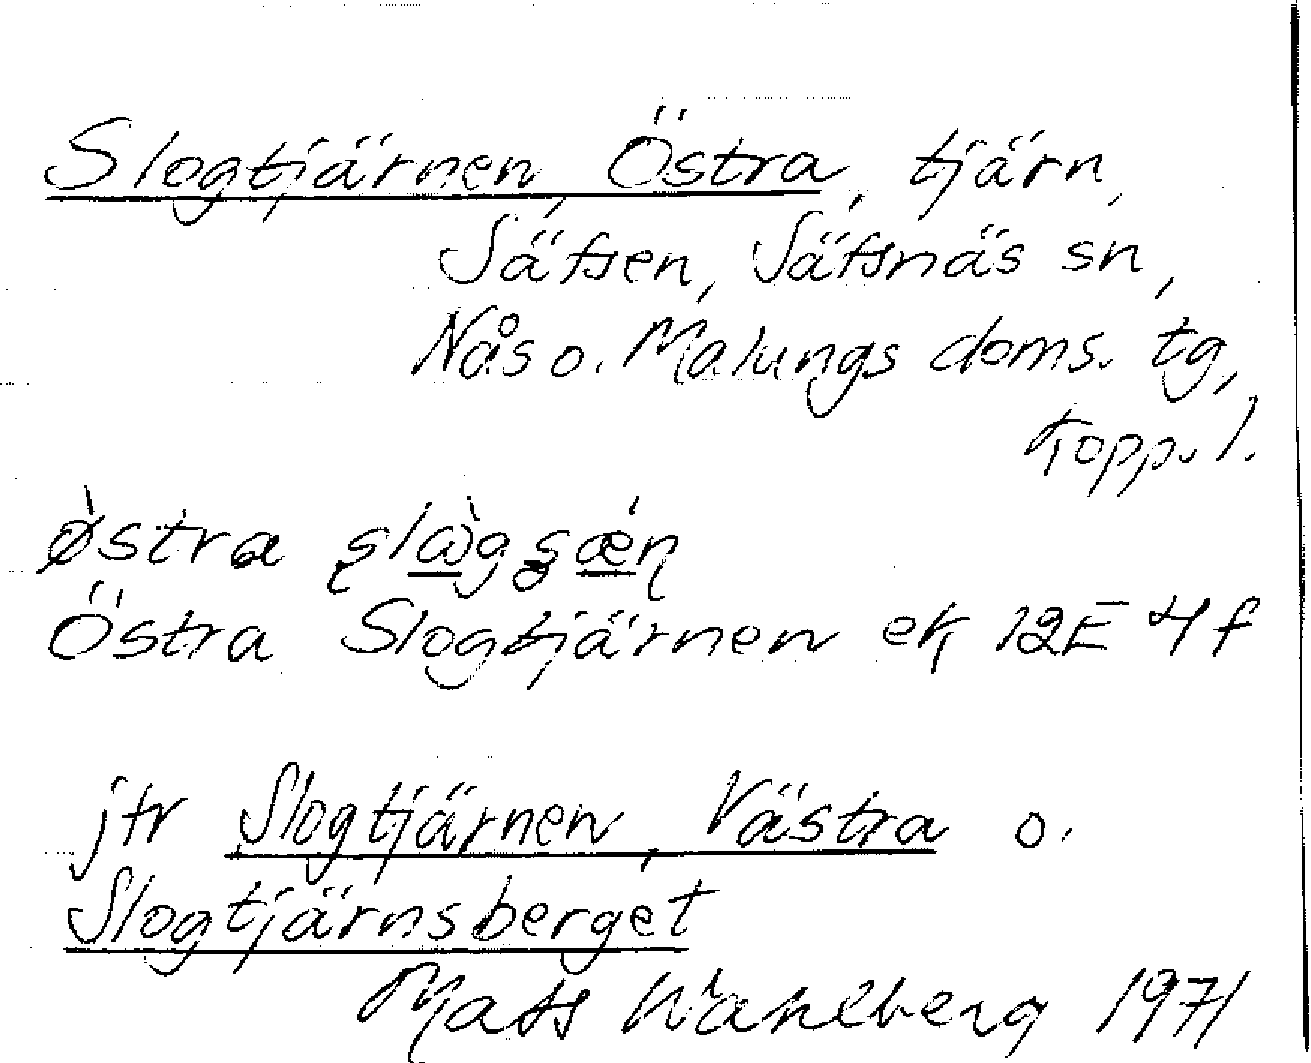 Slogtjärnen, Östra, tjärn,
Säfsen, Säfsnäs sn,
Nås o. Malungs doms. tg,
Kopp. l.
östra
Östra Slogtjärnen ek 12E 4f
jfr Slogtjärnen, Västra o.
Slogtjärnsberget
Mats Wahlberg 1971